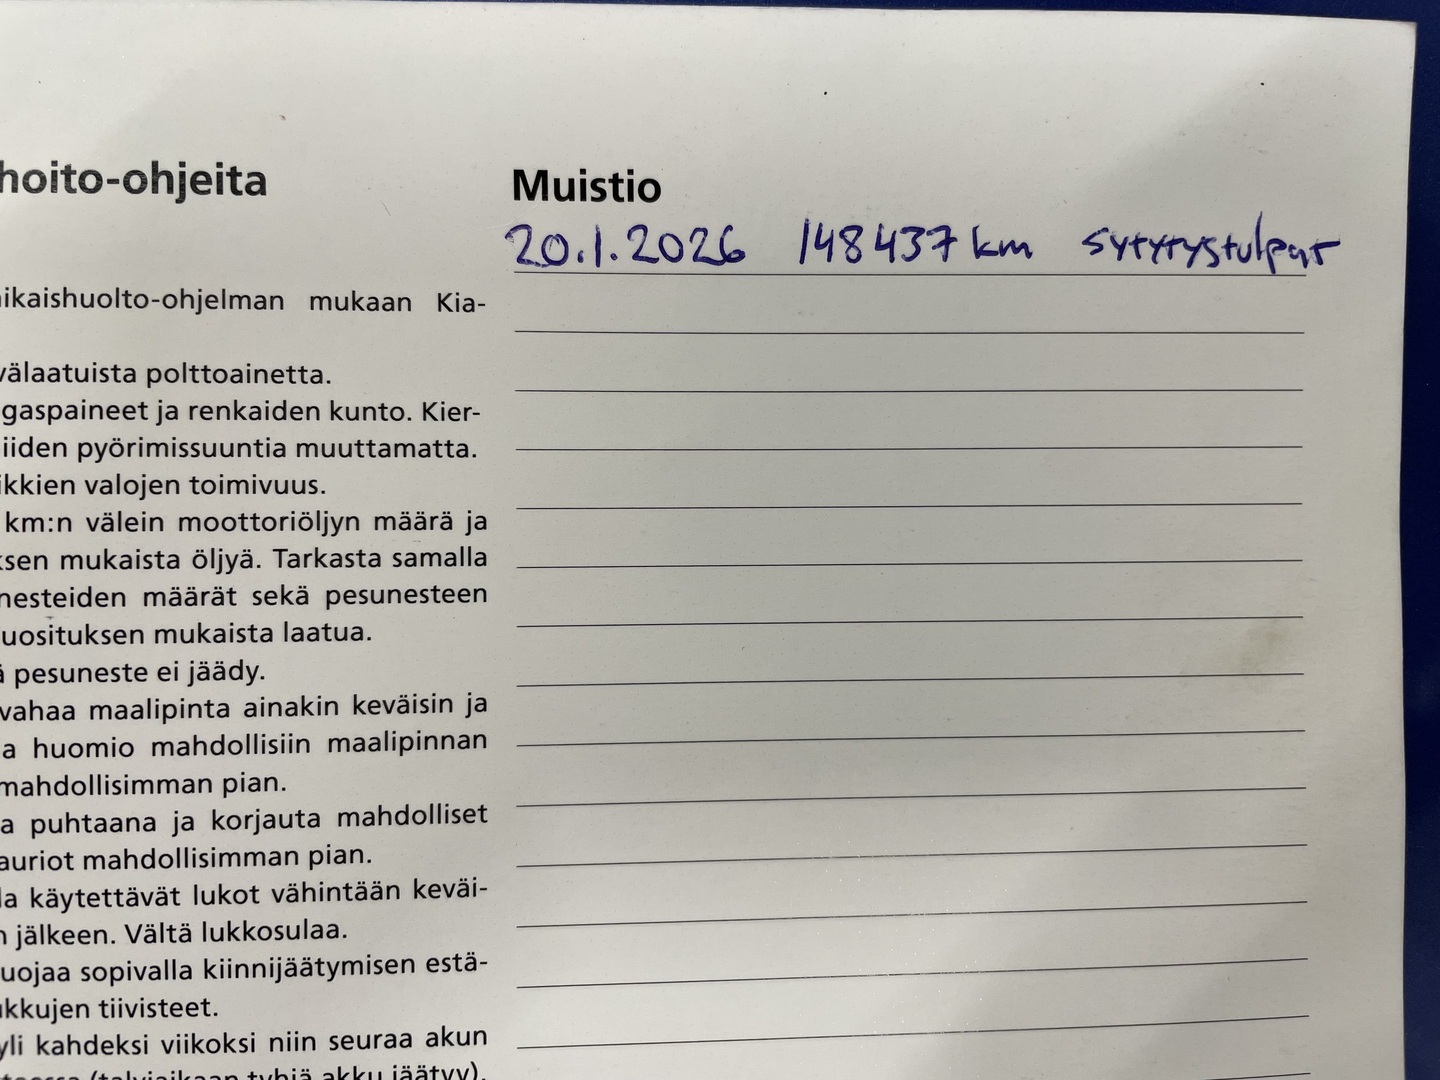 hoito-ohjeita
Muistio
20.1.2026 148437 km sytytystulpat
aikaishuolto-ohjelman mukaan Kia-
välaatuista polttoainetta.
gaspaineet ja renkaiden kunto. Kier-
iiden pyörimissuuntia muuttamatta.
ikkien valojen toimivuus.
km:n välein moottoriöljyn määrä ja
ksen mukaista öljyä. Tarkasta samalla
nesteiden määrät sekä pesunesteen
uosituksen mukaista laatua.
ä pesuneste ei jäädy.
vahaa maalipinta ainakin keväisin ja
a huomio mahdollisiin maalipinnan
mahdollisimman pian.
a puhtaana ja korjauta mahdolliset
auriot mahdollisimman pian.
la käytettävät lukot vähintään keväi-
n jälkeen. Vältä lukkosulaa.
uojaa sopivalla kiinnijäätymisen estä-
ukkujen tiivisteet.
yli kahdeksi viikoksi niin seuraa akun
(talviaikaan tyhjä akku jäätyy).